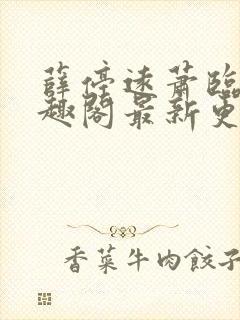 薛停远萧临
趣阁最新更
香菜牛肉餃子